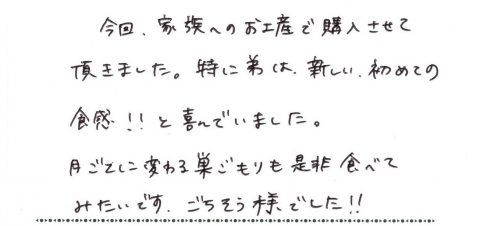 今回、家族へのお土産で購入させて
頂きました。特に弟は、新しい、初めての
食感!!と喜んでいました。
月ごとに変わる巣ごもりも是非食べて
みたいです、ごちそう様でした!!